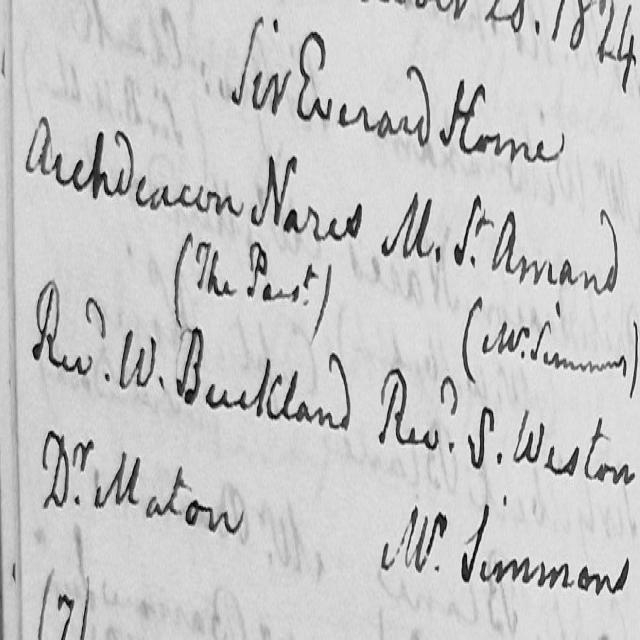 28. 1824
Sir Everard Home
Archdeacon Nares M. St. Amand
(The Prest.) (Mr. Simmons)
Revd. W. Buckland Revd. S. Weston
Dr. Maton Mr. Simmons
(7)